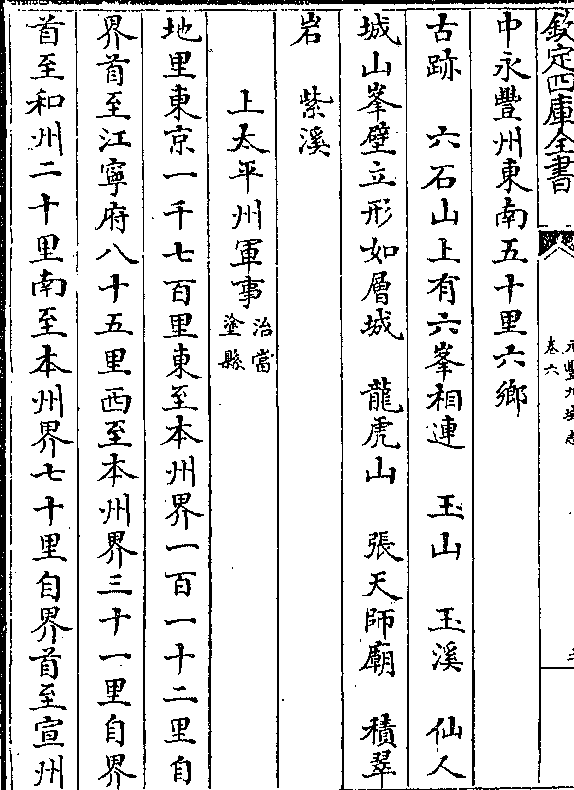 欽定四庫全書
卷六
中永豐州東南五十里六鄉
古跡　六石山上有六峯相連　玉山　玉溪　仙人
城山峯壁立形如層城　龍虎山　張天師廟　積翠
岩　紫溪
上太平州軍事治當塗縣
地里東京一千七百里東至本州界一百一十二里自
界首至江寧府八十五里西至本州界三十一里自界
首至和州二十里南至本州界七十里自界首至宣州